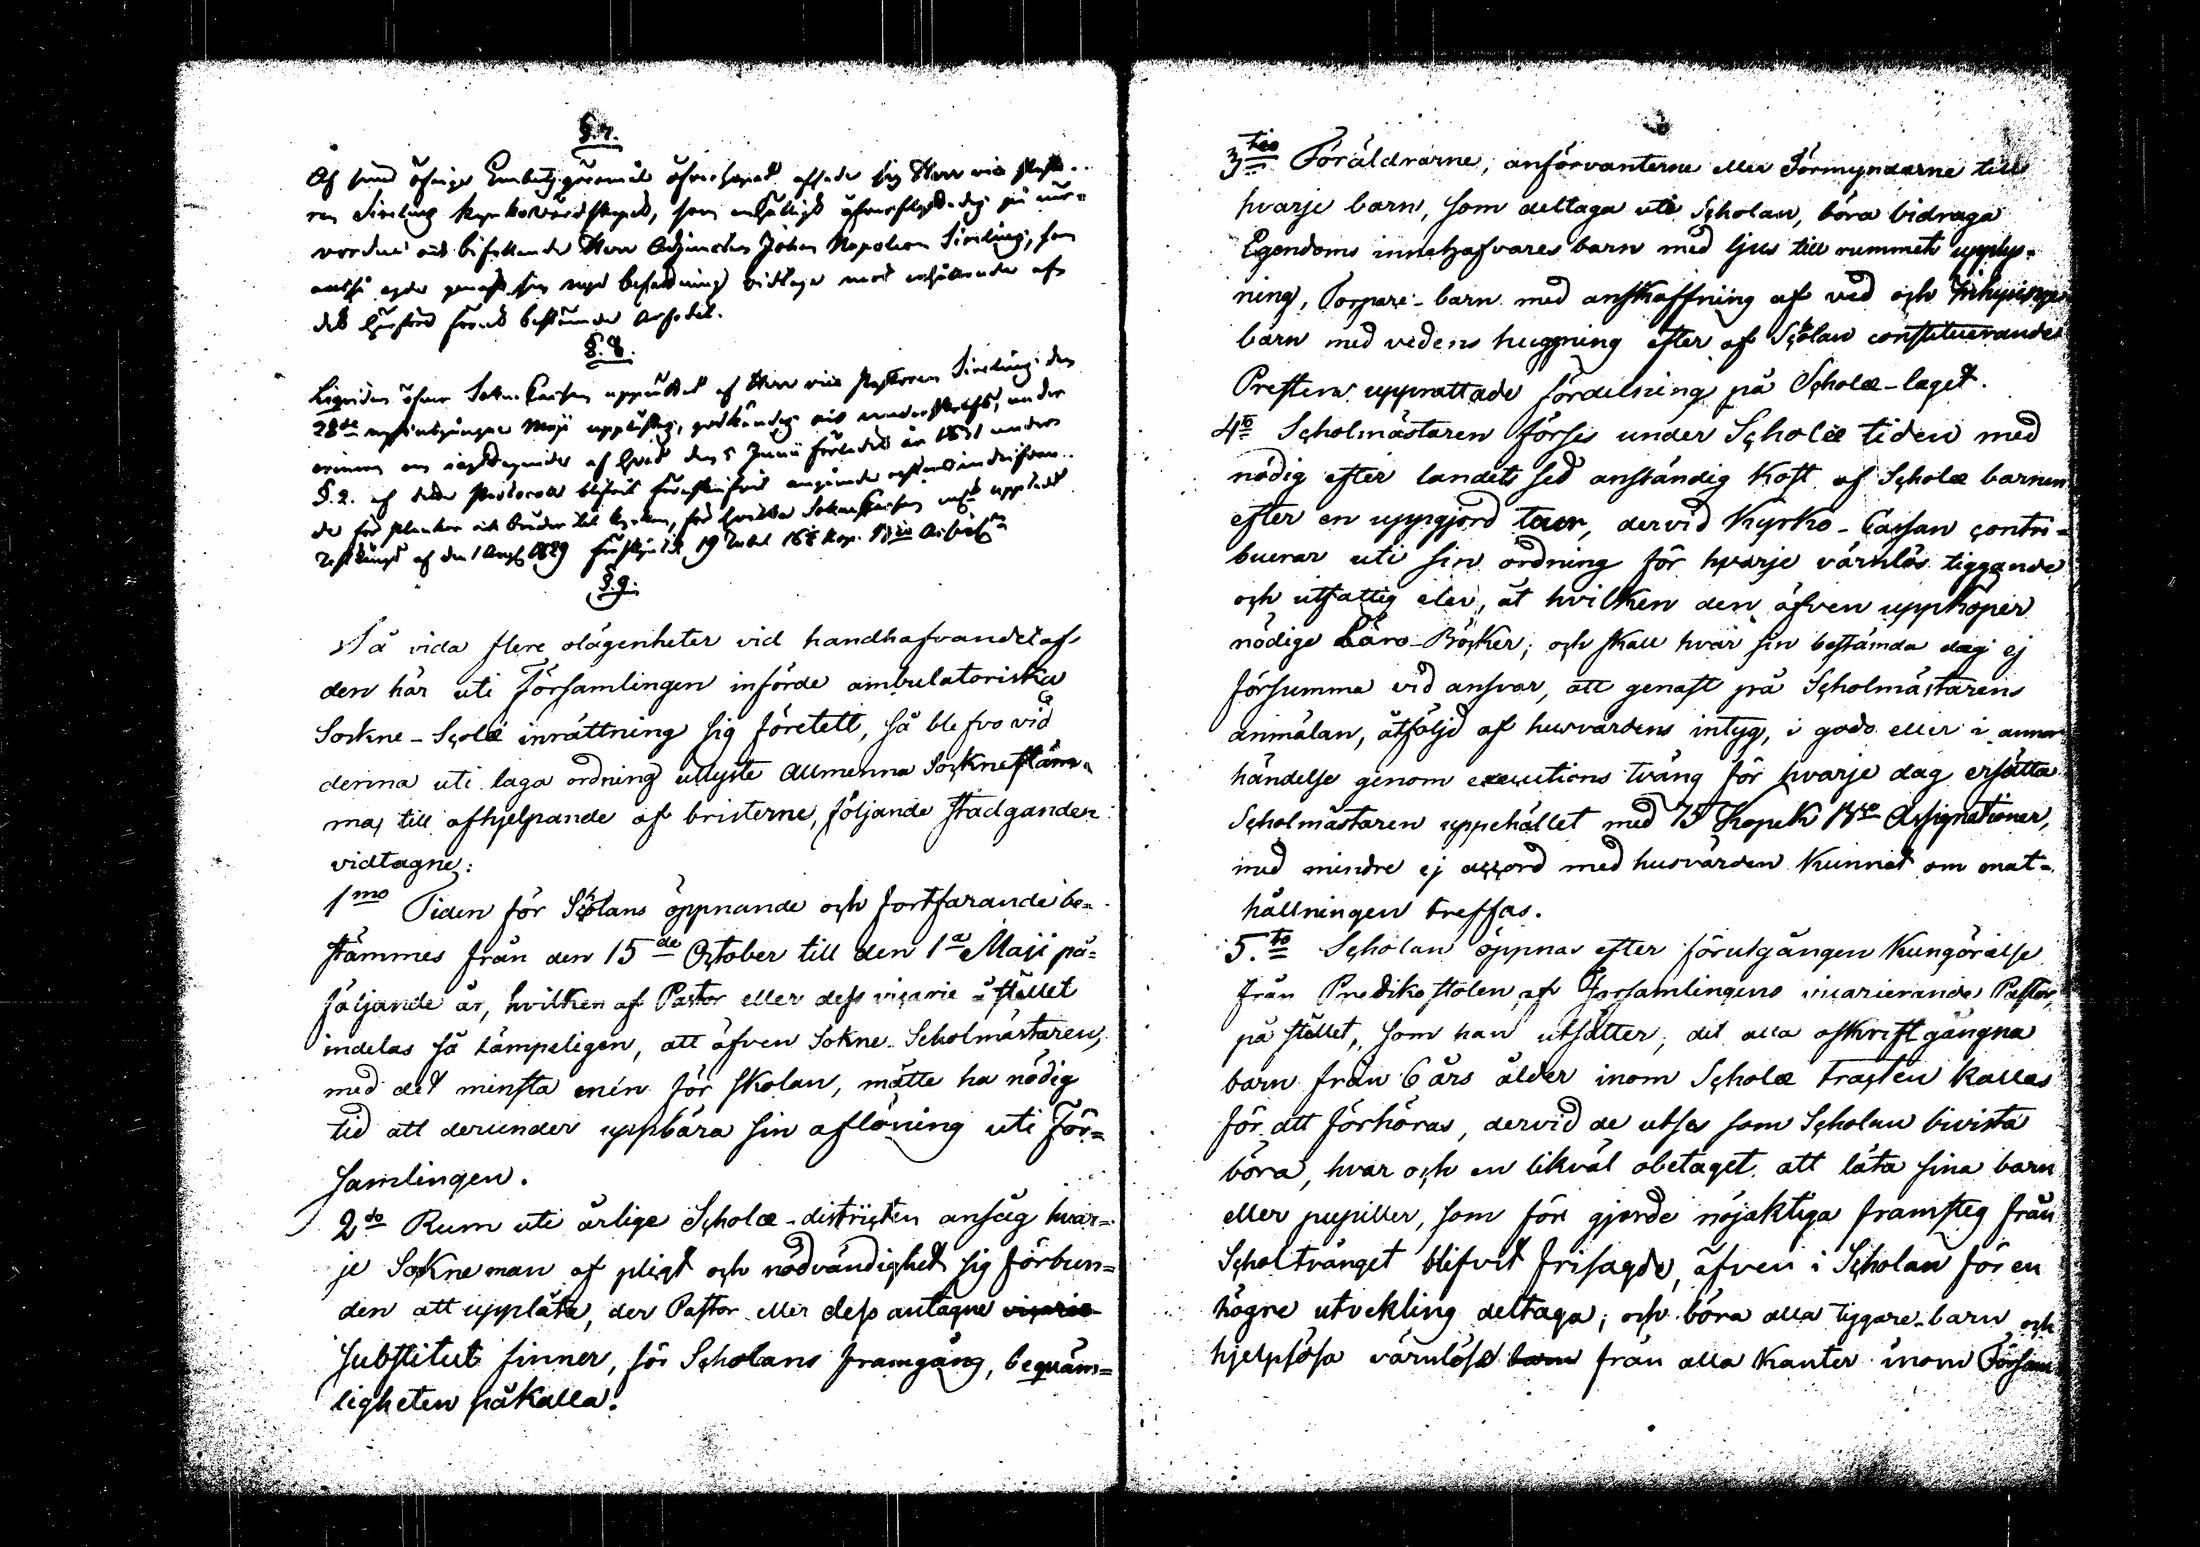 §.7.
Af sine öfrige Embetzgöromål
ren Sireling kyrkovärdskapet, som enhäligt
vordne och bifallande Herr Adjuncten Johan Napoleon Sireling, som
det härförd förut bestämde
§.8.
öfver Sokne Cassan uppvistat af Herr vice Pastoren Sireling den
28de Maji uppläste, godkändes och underskrefs, under
erinran om af hvad den 5 Junii förledit år 1831 under
§.2. af detta Protocoll blifvit
de för plankor och bräder till kyrkan, för hvilka Sokne Cassan
af den 1 1829 19 Rubel 16 kop. Bco
§.9.
Så vida flere olägenheter vid handhafvandet af
den här uti Församlingen införde ambulatoriska
Sockne-Scolæ inrättning sig företett, så blefvo vid
denna uti laga ordning utlyste Allmenna Sockneståm-
ma, till afhjelpande af bristerne, följande stadganden
vidtagne:
1mo Tiden för Scholans öppnande och fortfarande be-
stämmes från den 15de October till den 1a Maji på-
följande år, hvilken af Pastor eller dess vicarie å stället
indelas så lämpeligen, att äfven Sokne-Scholmästaren,
med det minsta mén för skolan, måtte ha nödig
tid att derunder uppbära sin aflöning uti För-
samlingen.
2do Rum uti årlige Scholæ-districten ansåg hvar-
je Sokneman af pligt och nödvändighet sig förbun-
den att upplåta, der Pastor eller dess antagne vicarie
substitut finner, för Scholans framgång, beqväm-
ligheten påkalla.
3tio Föräldrarne, anförvanterne eller Förmyndarne till
hvarje barn, som deltaga uti Scholan, böra bidraga
Egendoms innehafvares barn med ljus till rummets upplys-
ning, Torpare-barn med anskaffning af ved och Inhysinge
barn med vedens huggning efter af Scholan constituerande
Presten upprättade fördelning på Scholæ-laget.
4to Scholmästaren förses under Scholæ tiden med
nödig efter landets sed anständig kost af Scholæ barnen
efter en uppgjord tour, dervid Kyrko-Cassan contri-
buerar uti sin ordning för hvarje värnlös tiggande
och utfattig elev, åt hvilken den äfven uppköper
nödige Läro-Böcker; och skall hvar sin bestämda dag ej
försumma vid ansvar, att genast på Scholmästarens
anmälan, åtföljd af husvärdens intyg, i godo eller i annor
händelse genom executions tvång för hvarje dag ersätta
Scholmästaren uppehållet med 75 Kopek Bco Assignationer,
med mindre ej accord med husvärden kunnat om mat-
hållningen treffas.
5.to Scholan öppnas efter förutgången kungörelse
från Predikostolen af Församlingens vicarierande Pastor,
på stället, som han utsätter, dit alla oskriftgångna
barn från 6 års ålder inom Scholæ tracten kallas
för att förhöras, dervid de utses som Scholan bivista
böra, hvar och en likväl obetaget att låta sina barn
eller pupiller, som för gjorde nöjaktiga framsteg från
Scholtvånget blifvit frisagde, äfven i Scholan för en
högre utvekling deltaga; och böra alla tiggare-barn och
hjelplösa värnlösa barn från alla kanter inom Försam-